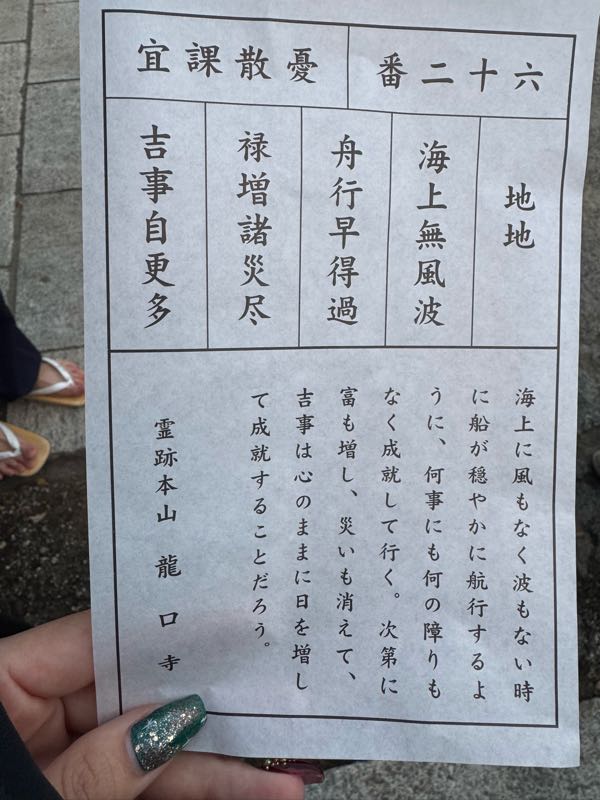 六十二番
憂散課宜
地地
海上無風波
舟行早得過
禄増諸災尽
吉事自更多
海上に風もなく波もない時
に船が穏やかに航行するよ
うに、何事にも何の障りも
なく成就して行く。次第に
富も増し、災いも消えて、
吉事は心のままに日を増し
て成就することだろう。
霊跡本山 龍口寺